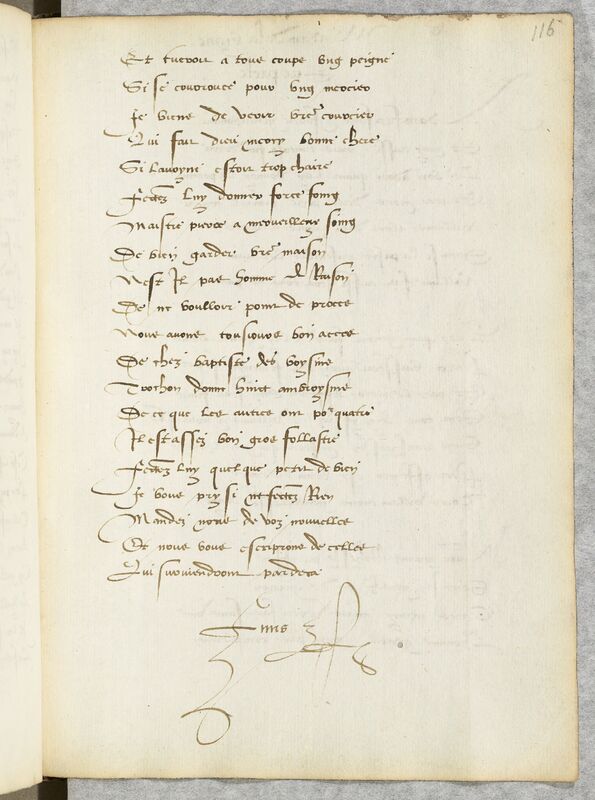 116
Et tueroit a tous coups ung peigne
Si se courouce pour ung mercier
Je viens de veoir vre coursier
Qui fait dieu mercy bonne chere
Si lavoyne estoit trop chaire
Fectes luy donner force foing
Maistre pierre a merveilleux soing
De bien garder vre maison
Nest Il pas homme de Raison
De ne voulloir point de proces
Nous avons tousiours bon acces
De chez baptiste des voysins
donne
De ce que les autres ont por quatre
Il est assez bon gros follastre
Fectes luy quelque petit de bien
Je vous pry si ne fectes Rien
Mandez nous de voz nouvelles
Et nous vous escriprons de celles
Qui surviendront par deca
Finis